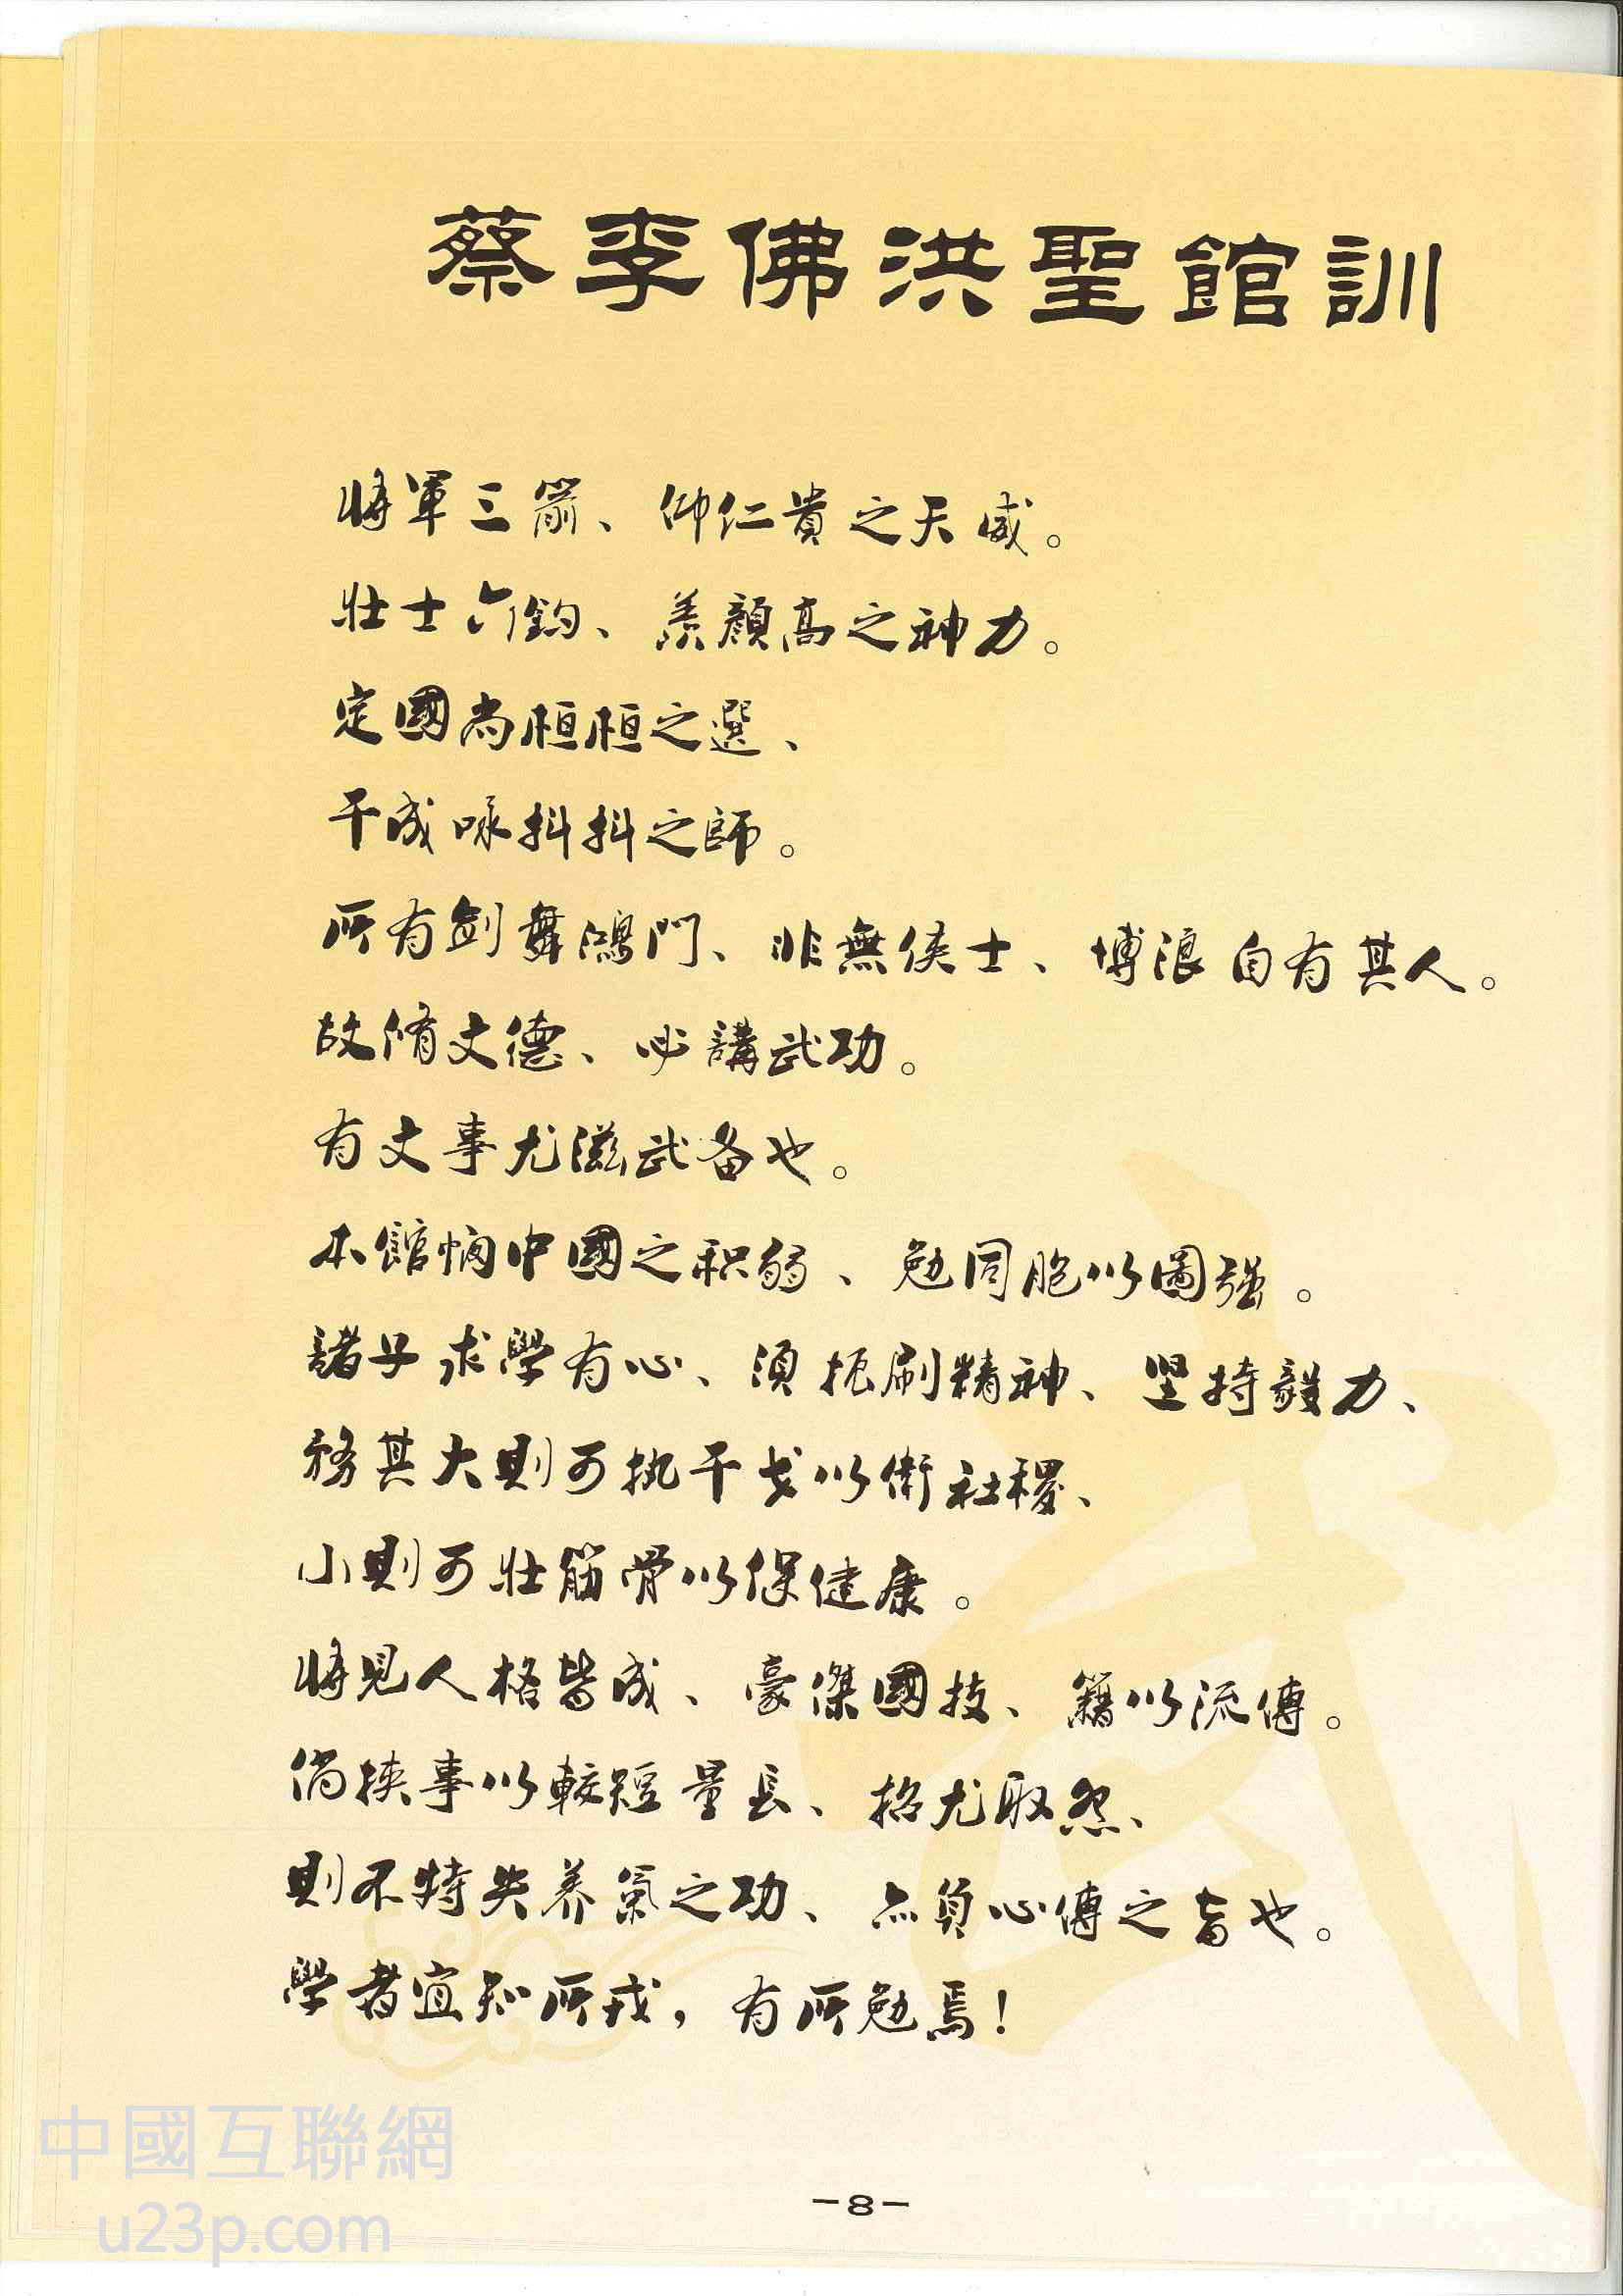 蔡李佛洪聖館訓
將軍三箭、仰仁貴之天威。
壯士六鈞、羨顏高之神力。
定國尚桓桓之選、
干成咏抖抖之師。
所有劍舞鴻門、非無俠士、博浪自有其人。
故脩文德、必講武功。
有文事尤滋武备也。
本館悯中國之积弱、勉同胞以圖强。
諸子求學有心、須振刷精神、坚持毅力、
務其大則可执干戈以衛社稷、
小則可壯筋骨以保健康。
將見人格皆成、豪傑國技、籍以流傳。
倘挟事以較短量長、招尤取怨、
則不特失养氣之功、亦負心傳之旨也。
學者宜知所戒，有所勉焉！
中國互聯網
u23p.com
-8-